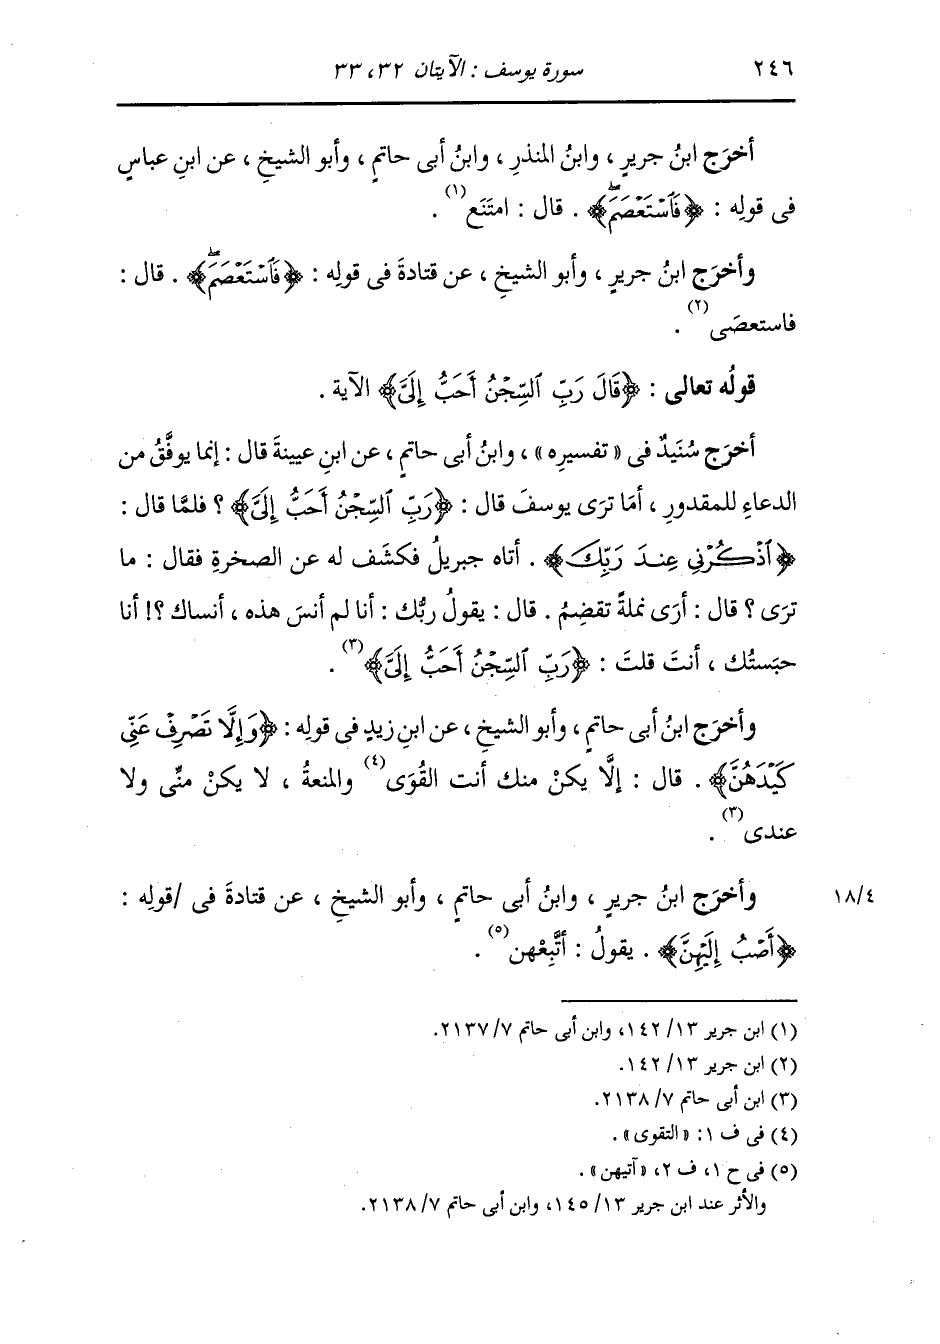 ٢٤٦ سورة يوسف : الآيتان ٣٢، ٣٣
أخرَج ابنُ جريرٍ ، وابنُ المنذرِ ، وابنُ أبى حاتمٍ ، وأبو الشيخِ ، عن ابنِ عباسٍ
فى قولِه : ﴿فَٱسْتَعْصَمَۖ﴾ . قال : امتَنَع(١) .
وأخرَج ابنُ جريرٍ ، وأبو الشيخِ ، عن قتادةَ فى قولِه : ﴿فَٱسْتَعْصَمَۖ﴾ . قال :
فاستعصَى(٢) .
قولُه تعالى : ﴿قَالَ رَبِّ ٱلسِّجْنُ أَحَبُّ إِلَىَّ﴾ الآية .
أخرَج سُنَيدٌ فى « تفسيرِه » ، وابنُ أبى حاتمٍ ، عن ابنِ عيينةَ قال : إنما يوفَّقُ من
الدعاءِ للمقدورِ ، أمَا ترَى يوسفَ قال : ﴿رَبِّ ٱلسِّجْنُ أَحَبُّ إِلَىَّ﴾ ؟ فلمَّا قال :
﴿ٱذْكُرْنِى عِندَ رَبِّكَ﴾ . أتاه جبريلُ فكشَف له عن الصخرةِ فقال : ما
ترَى ؟ قال : أرَى نملةً تقضِمُ . قال : يقولُ ربُّك : أنا لم أنسَ هذه ، أنساك ؟! أنا
حبَستُك ، أنتَ قلتَ : ﴿رَبِّ ٱلسِّجْنُ أَحَبُّ إِلَىَّ﴾(٣) .
وأخرَج ابنُ أبى حاتمٍ ، وأبو الشيخِ ، عن ابنِ زيدٍ فى قولِه : ﴿وَإِلَّا تَصْرِفْ عَنِّى
كَيْدَهُنَّ﴾ . قال : إلَّا يكنْ منك أنت القُوَى(٤) والمنعةُ ، لا يكنْ منِّى ولا
عندى(٣) .
وأخرَج ابنُ جريرٍ ، وابنُ أبى حاتمٍ ، وأبو الشيخِ ، عن قتادةَ فى /قولِه : ١٨/٤
﴿أَصْبُ إِلَيْهِنَّ﴾ . يقولُ : أتَّبِعْهن(٥) .
(١) ابن جرير ١٣/ ١٤٢، وابن أبى حاتم ٧/ ٢١٣٧.
(٢) ابن جرير ١٣/ ١٤٢.
(٣) ابن أبى حاتم ٧/ ٢١٣٨.
(٤) فى ف ١: « التقوى» .
(٥) فى ح ١، ف ٢، «آتيهن» .
والأثر عند ابن جرير ١٣/ ١٤٥، وابن أبى حاتم ٧/ ٢١٣٨.